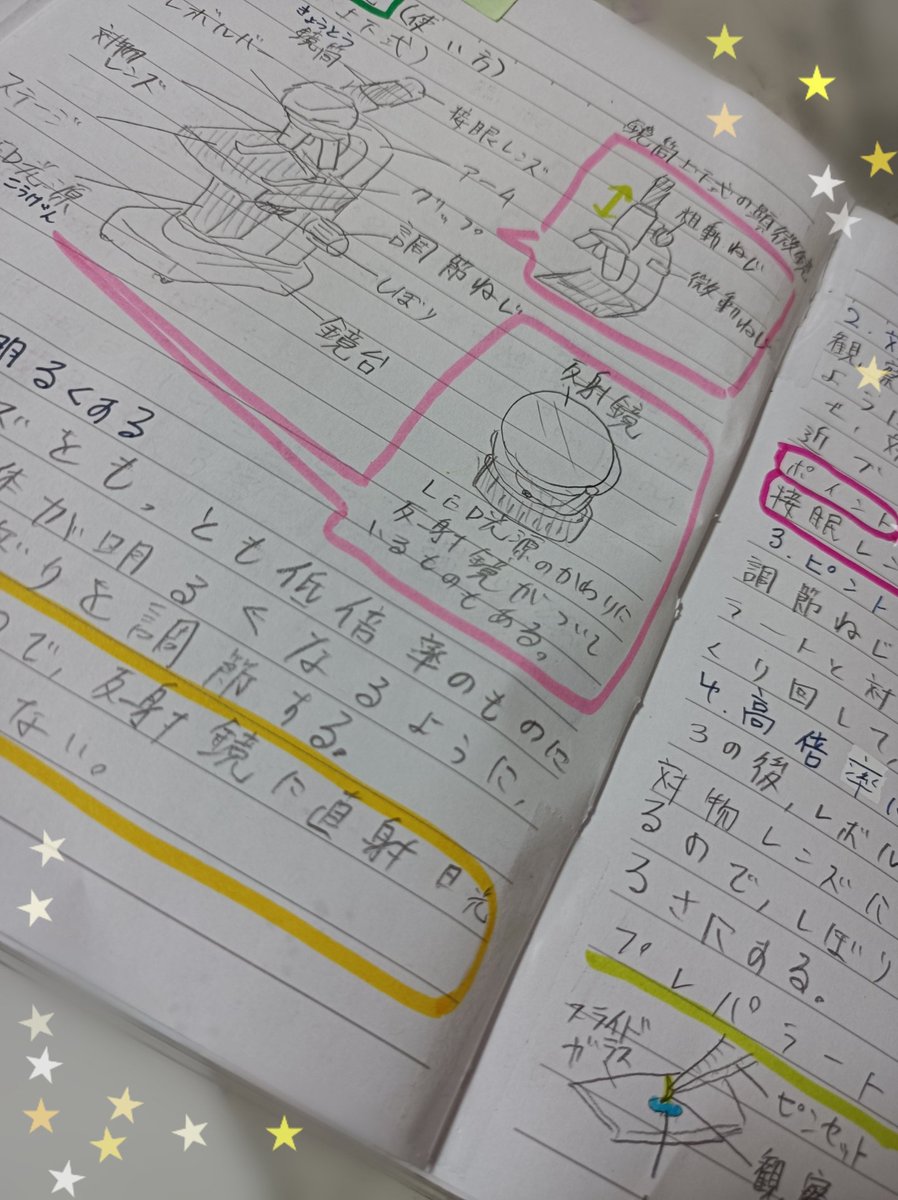 (使い方)
上下式)
レボルバー
きょうとう
鏡筒
対物
レンズ
ステージ
光源
こうげん
接眼レンズ
アーム
クリップ
調節ねじ
しぼり
鏡台
鏡筒上下式の顕微鏡
粗動ねじ
微動ねじ
反射鏡
LED光源のかわりに
反射鏡がついて
いるものもある。
明るくする
ズをもっとも低倍率のものに
が明るくなるように、
りを調節する。
で、反射鏡に直射日光
ない。
2.
観察
ように
近づ
ポイント
接眼レン
3.ピント
調節ねじ
ラートと対
くり回して、
4.高倍率に
3の後、レボル
対物レンズに
るので、しぼり
ろさにする。
プレパラート
スライド
ガラス
ピンセット
観察